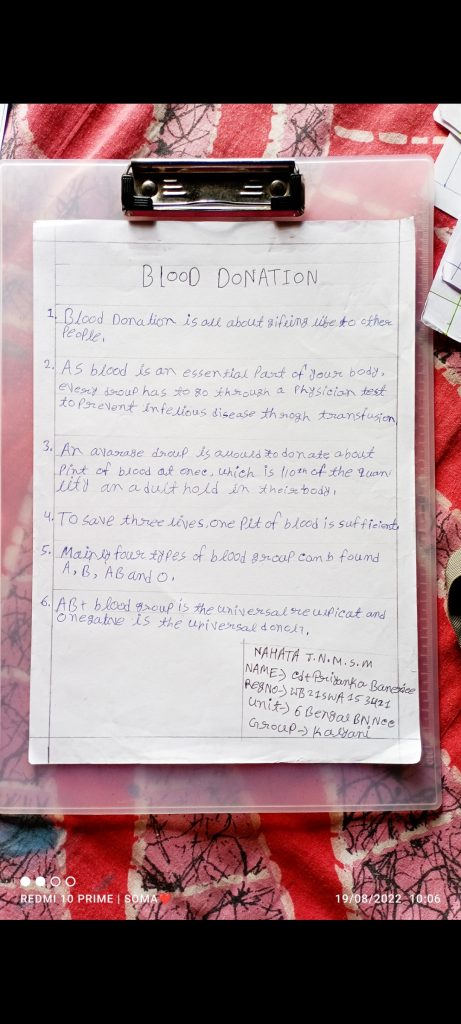 BLOOD DONATION
1. Blood Donation is all about gifting life to other
People.
2. AS blood is an essential Part of your body,
every droup has to go through a Physician test
to Prevent infetious disease throgh transfusion,
3. An avarage droup is allould to donate about
Pint of blood at onec, which is 1/10th of the quan
tity an adult hold in their body.
4. To save three lives, one Pit of blood is sufficient
5. Mainly four types of blood group can b found
A, B, AB and O.
6. AB+ blood group is the universal and
O negative is the universal donor.
NAHATA J.N.M.S.M
NAME-> Cdt Priyanka Banerjee
Reg No-> WB21SWA153421
Unit-> 6 Bengal BN Ncc
Group-> Kalyani
REDMI 10 PRIME | SOMA❤
19/08/2022 10:06